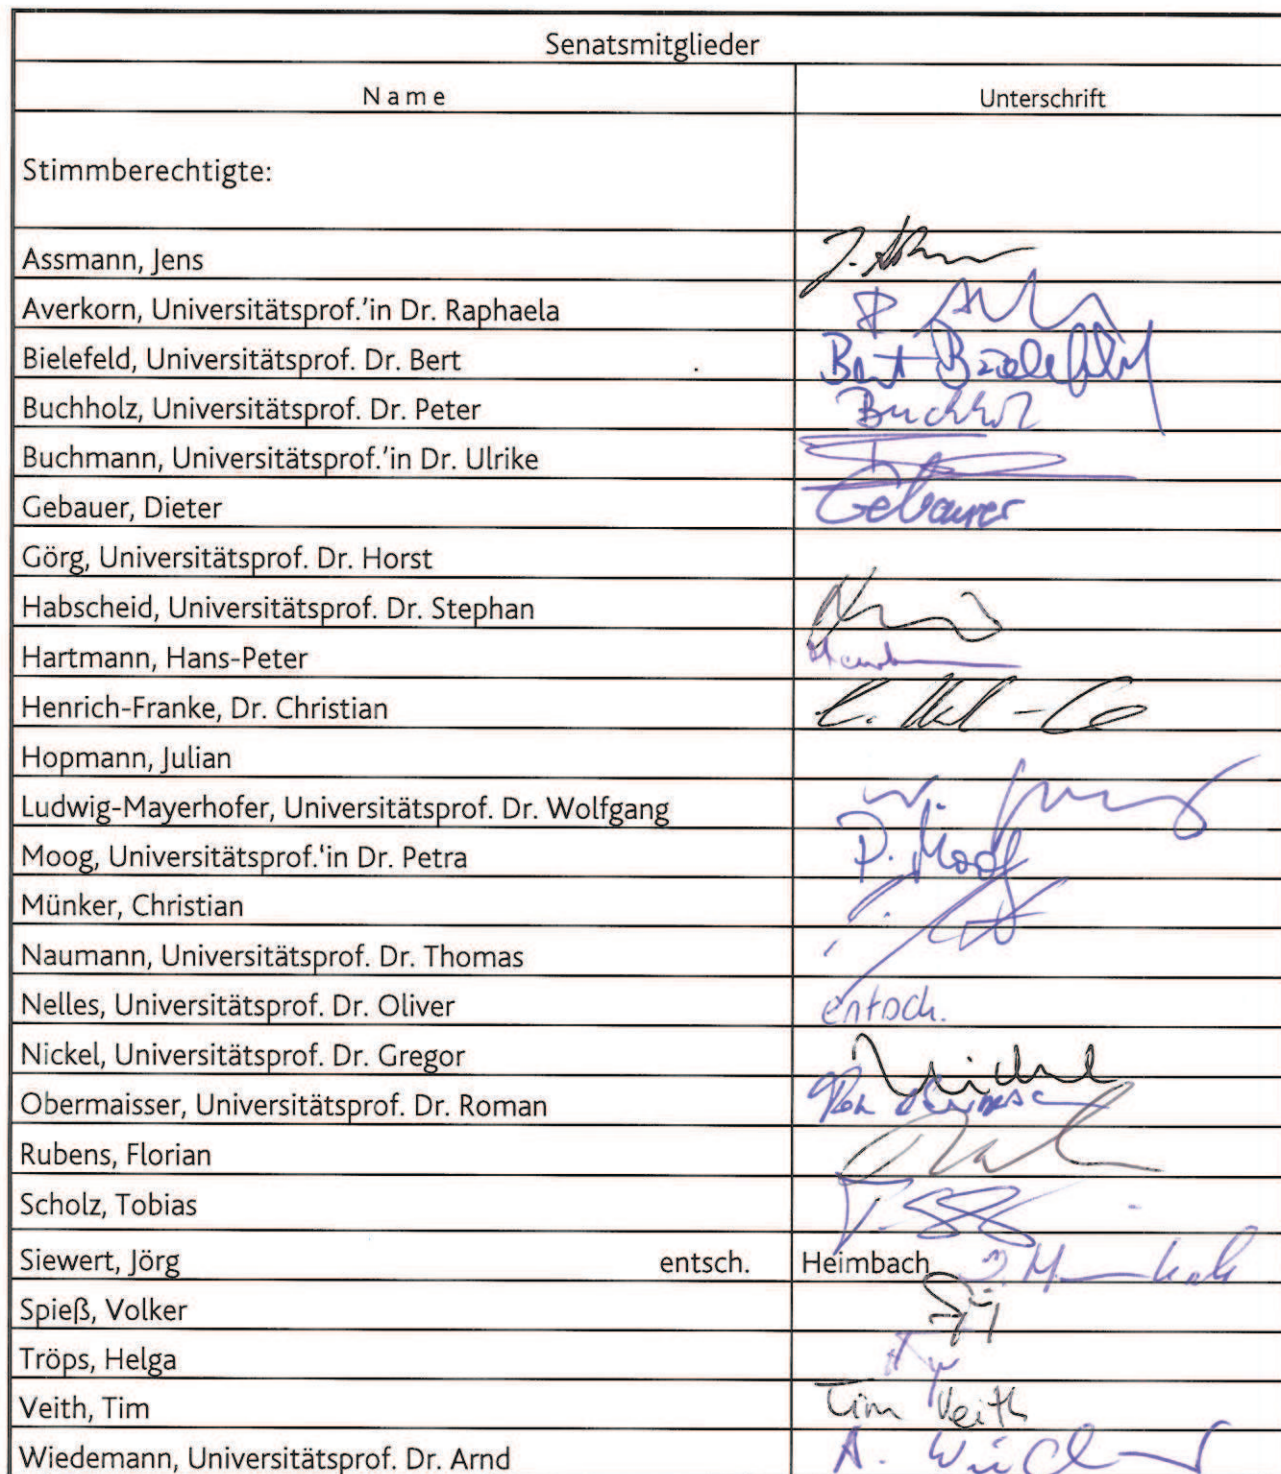 Senatsmitglieder
Name Unterschrift
Stimmberechtigte:
Assmann, Jens
Averkorn, Universitätsprof.'in Dr. Raphaela
Bielefeld, Universitätsprof. Dr. Bert Bert Bielefeld
Buchholz, Universitätsprof. Dr. Peter
Buchmann, Universitätsprof.'in Dr. Ulrike
Gebauer, Dieter Gebauer
Görg, Universitätsprof. Dr. Horst
Habscheid, Universitätsprof. Dr. Stephan
Hartmann, Hans-Peter
Henrich-Franke, Dr. Christian
Hopmann, Julian
Ludwig-Mayerhofer, Universitätsprof. Dr. Wolfgang
Moog, Universitätsprof.'in Dr. Petra P. Moog
Münker, Christian
Naumann, Universitätsprof. Dr. Thomas
Nelles, Universitätsprof. Dr. Oliver entsch.
Nickel, Universitätsprof. Dr. Gregor
Obermaisser, Universitätsprof. Dr. Roman
Rubens, Florian
Scholz, Tobias
Siewert, Jörg entsch. Heimbach
Spieß, Volker
Tröps, Helga
Veith, Tim Tim Veith
Wiedemann, Universitätsprof. Dr. Arnd